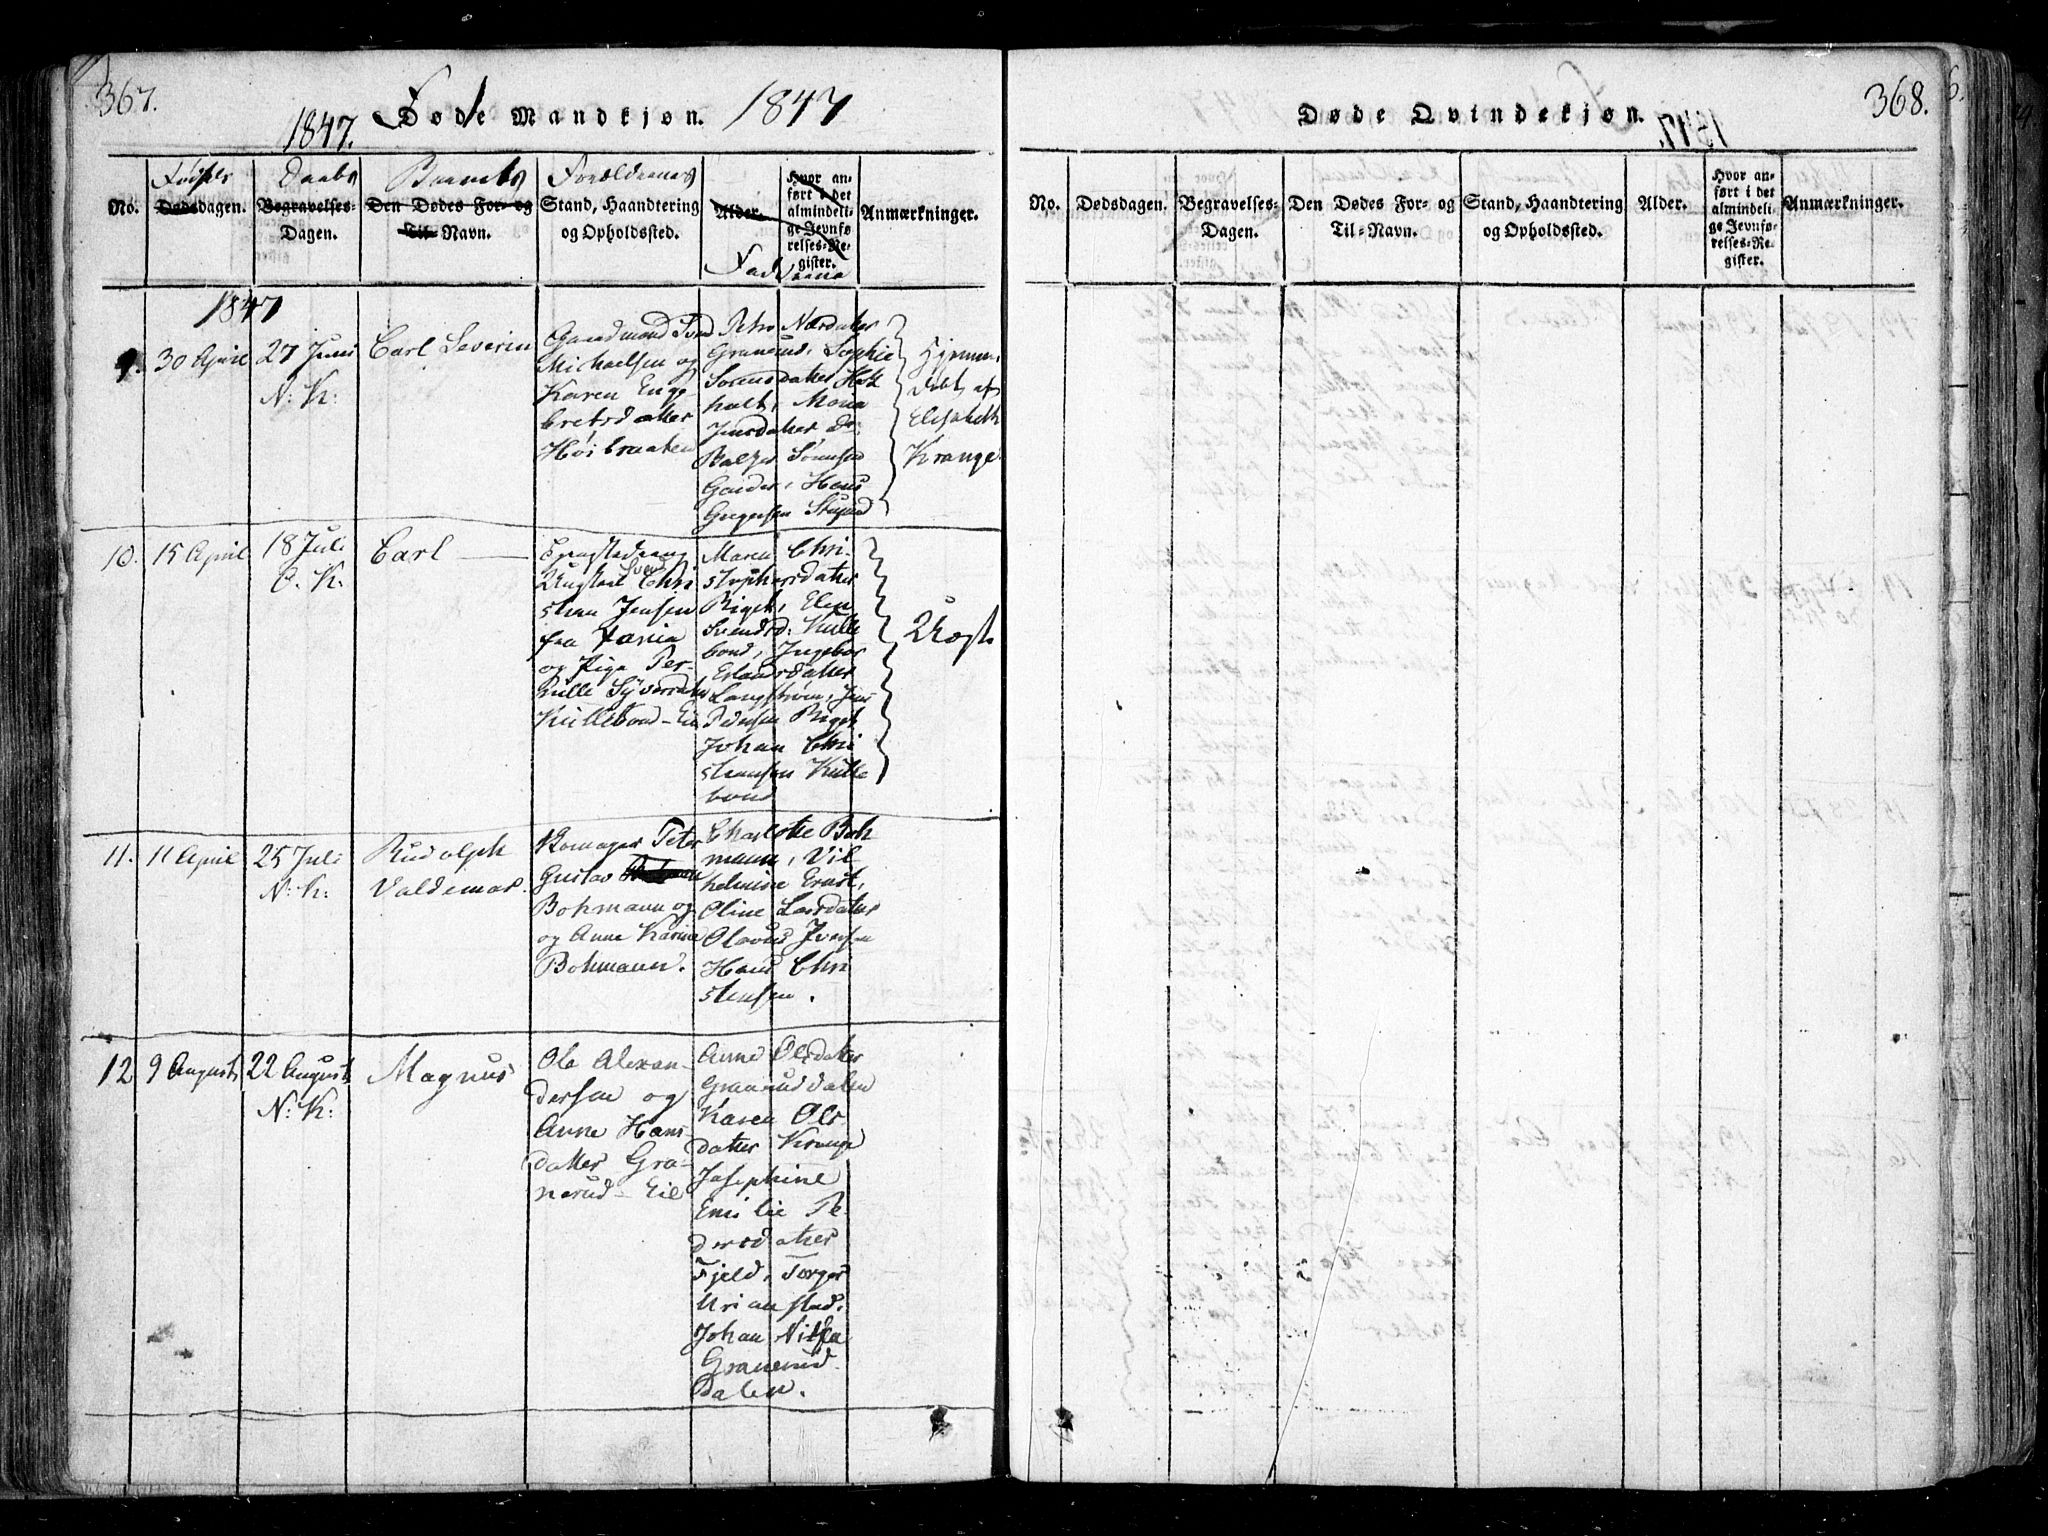 367.
1847.
Føde Mandkjøn. 1847
No.
Fødselsdagen.
Daabs
Dagen.
Barnets
Navn.
Forældrenes
Stand, Haandtering
og Opholdssted.
Alder.
Hvor an-
ført i det
almindeli-
ge Jevnfø-
relses-Re-
gister.
Faddrene
Anmærkninger.
1847
9. 30 April
27 Juni
N: K:
Carl Severin
Gaardmand
Michaelsen og
Karen Enge-
bretsdatter
Høibraaten
Grønerud, Sophie
Sørensdatter
holt, Maria
Jensdatter do:
Sørensen
Hans
Gregersen
Hjemme-
døbt af
Elisabeth
Krange
10. 15 April
18 Juli
C. K:
Carl
Svend
Ungkarl Chri
stian Jensen
fra
og Pige Per-
nille Syversdatter
Kullebond - Eie
Maren Chri-
stophersdatter
Riget, Elen
Svendsd: Kulle
bond, Ingebor
Erlandsdatter
Langstrøm, Jens
Pedersen Riget
Johan Chri
stiansen Kulle
bond
Uægte
11. 11 April
25 Juli
N: K:
Rudolph
Valdemar.
Peter
Gustav
Bohmann og
og Anne Karine
Bohmann.
Charlotte Boh
mann, Vil
helmine Ernst,
Oline Larsdatter
Olavus Iversen
Hans Chri
stensen.
12
9 August
22 August
N: K:
Magnus
Ole Alexan-
dersen og
Anne Hans
datter Gra-
nerud - Eie
Anne Olsdatter
Granerud dalen
Karen Ols
datter Krange
Josephine
Emilie Pe-
dersdatter
Fjeld, Torger
Urianstad,
Johan Nilsen
Granerud
dalen.
Døde Qvindekjøn.
368.
No.
Dødsdagen.
Begravelses-
Dagen.
Den Dødes For- og
Til-Navn.
Stand, Haandtering
og Opholdssted.
Alder.
Hvor an-
ført i det
almindeli-
ge Jevnfø-
relses-Re-
gister.
Anmærkninger.